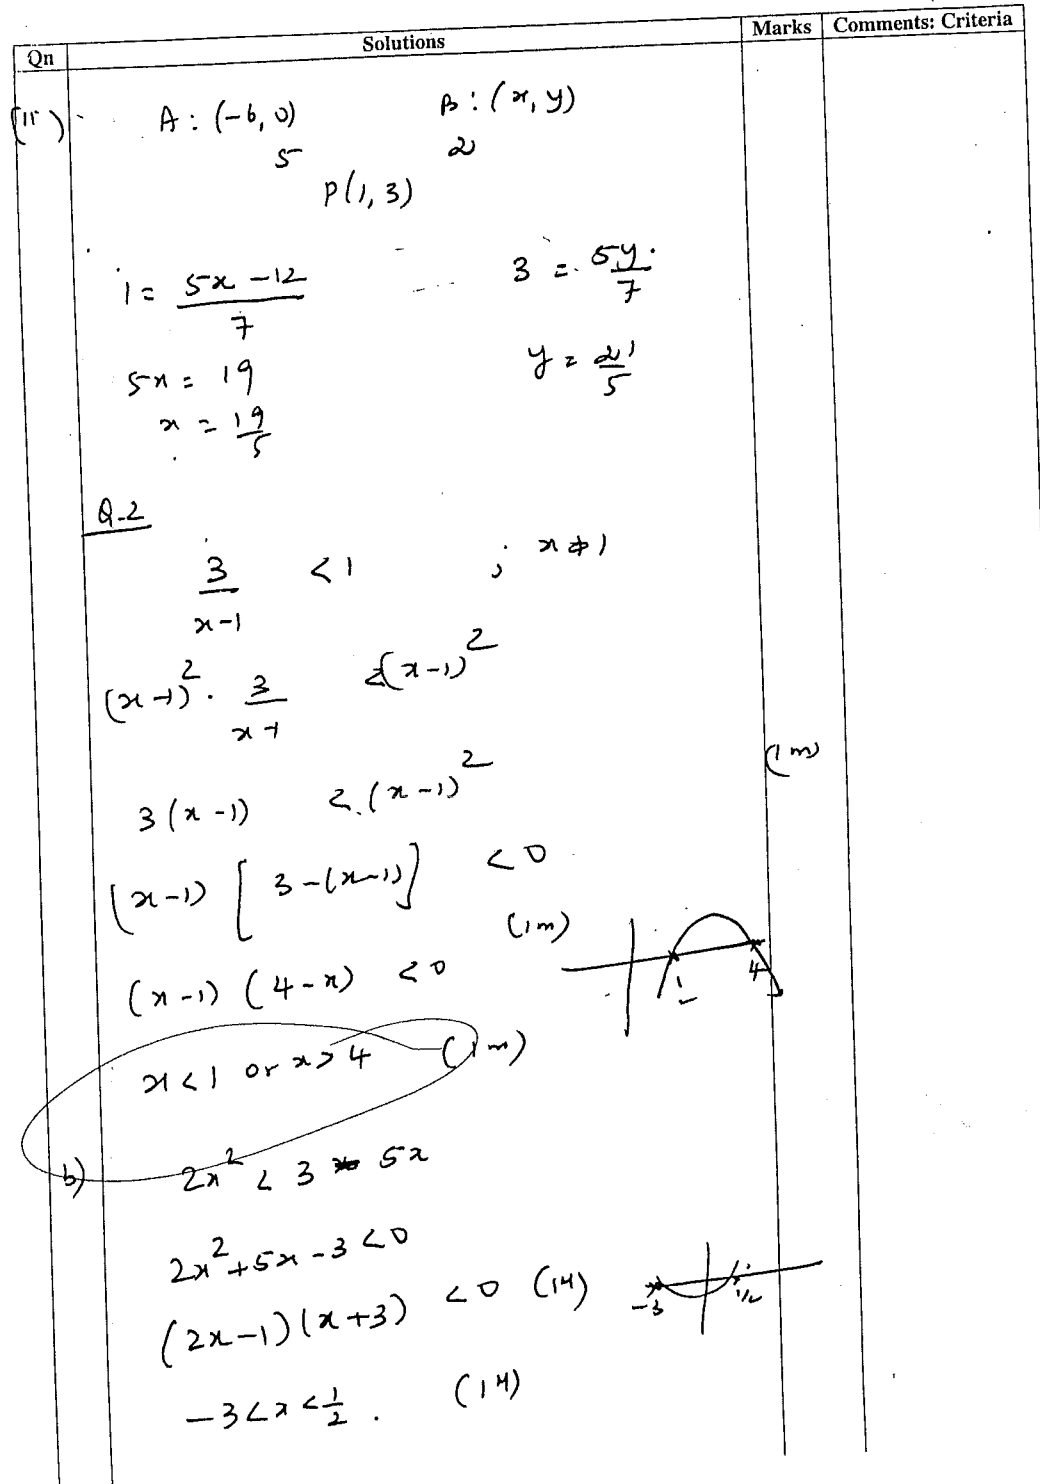 Qn Solutions Marks Comments: Criteria
(ii) A : (-6, 0) B : (x, y)
5 2
P(1, 3)
1 = (5x - 12)/7 3 = 5y/7
5x = 19 y = 21/5
x = 19/5
Q-2
3/(x-1) < 1 ; x ≠ 1
(x-1)² · 3/(x-1) < (x-1)²
(1m)
3(x-1) < (x-1)²
(x-1) [3-(x-1)] < 0
(1m)
(x-1) (4-x) < 0
1 4
x < 1 or x > 4 (1m)
b) 2x² < 3 - 5x
2x² + 5x - 3 < 0
(2x-1)(x+3) < 0 (1M)
-3 1/2
-3 < x < 1/2 . (1M)